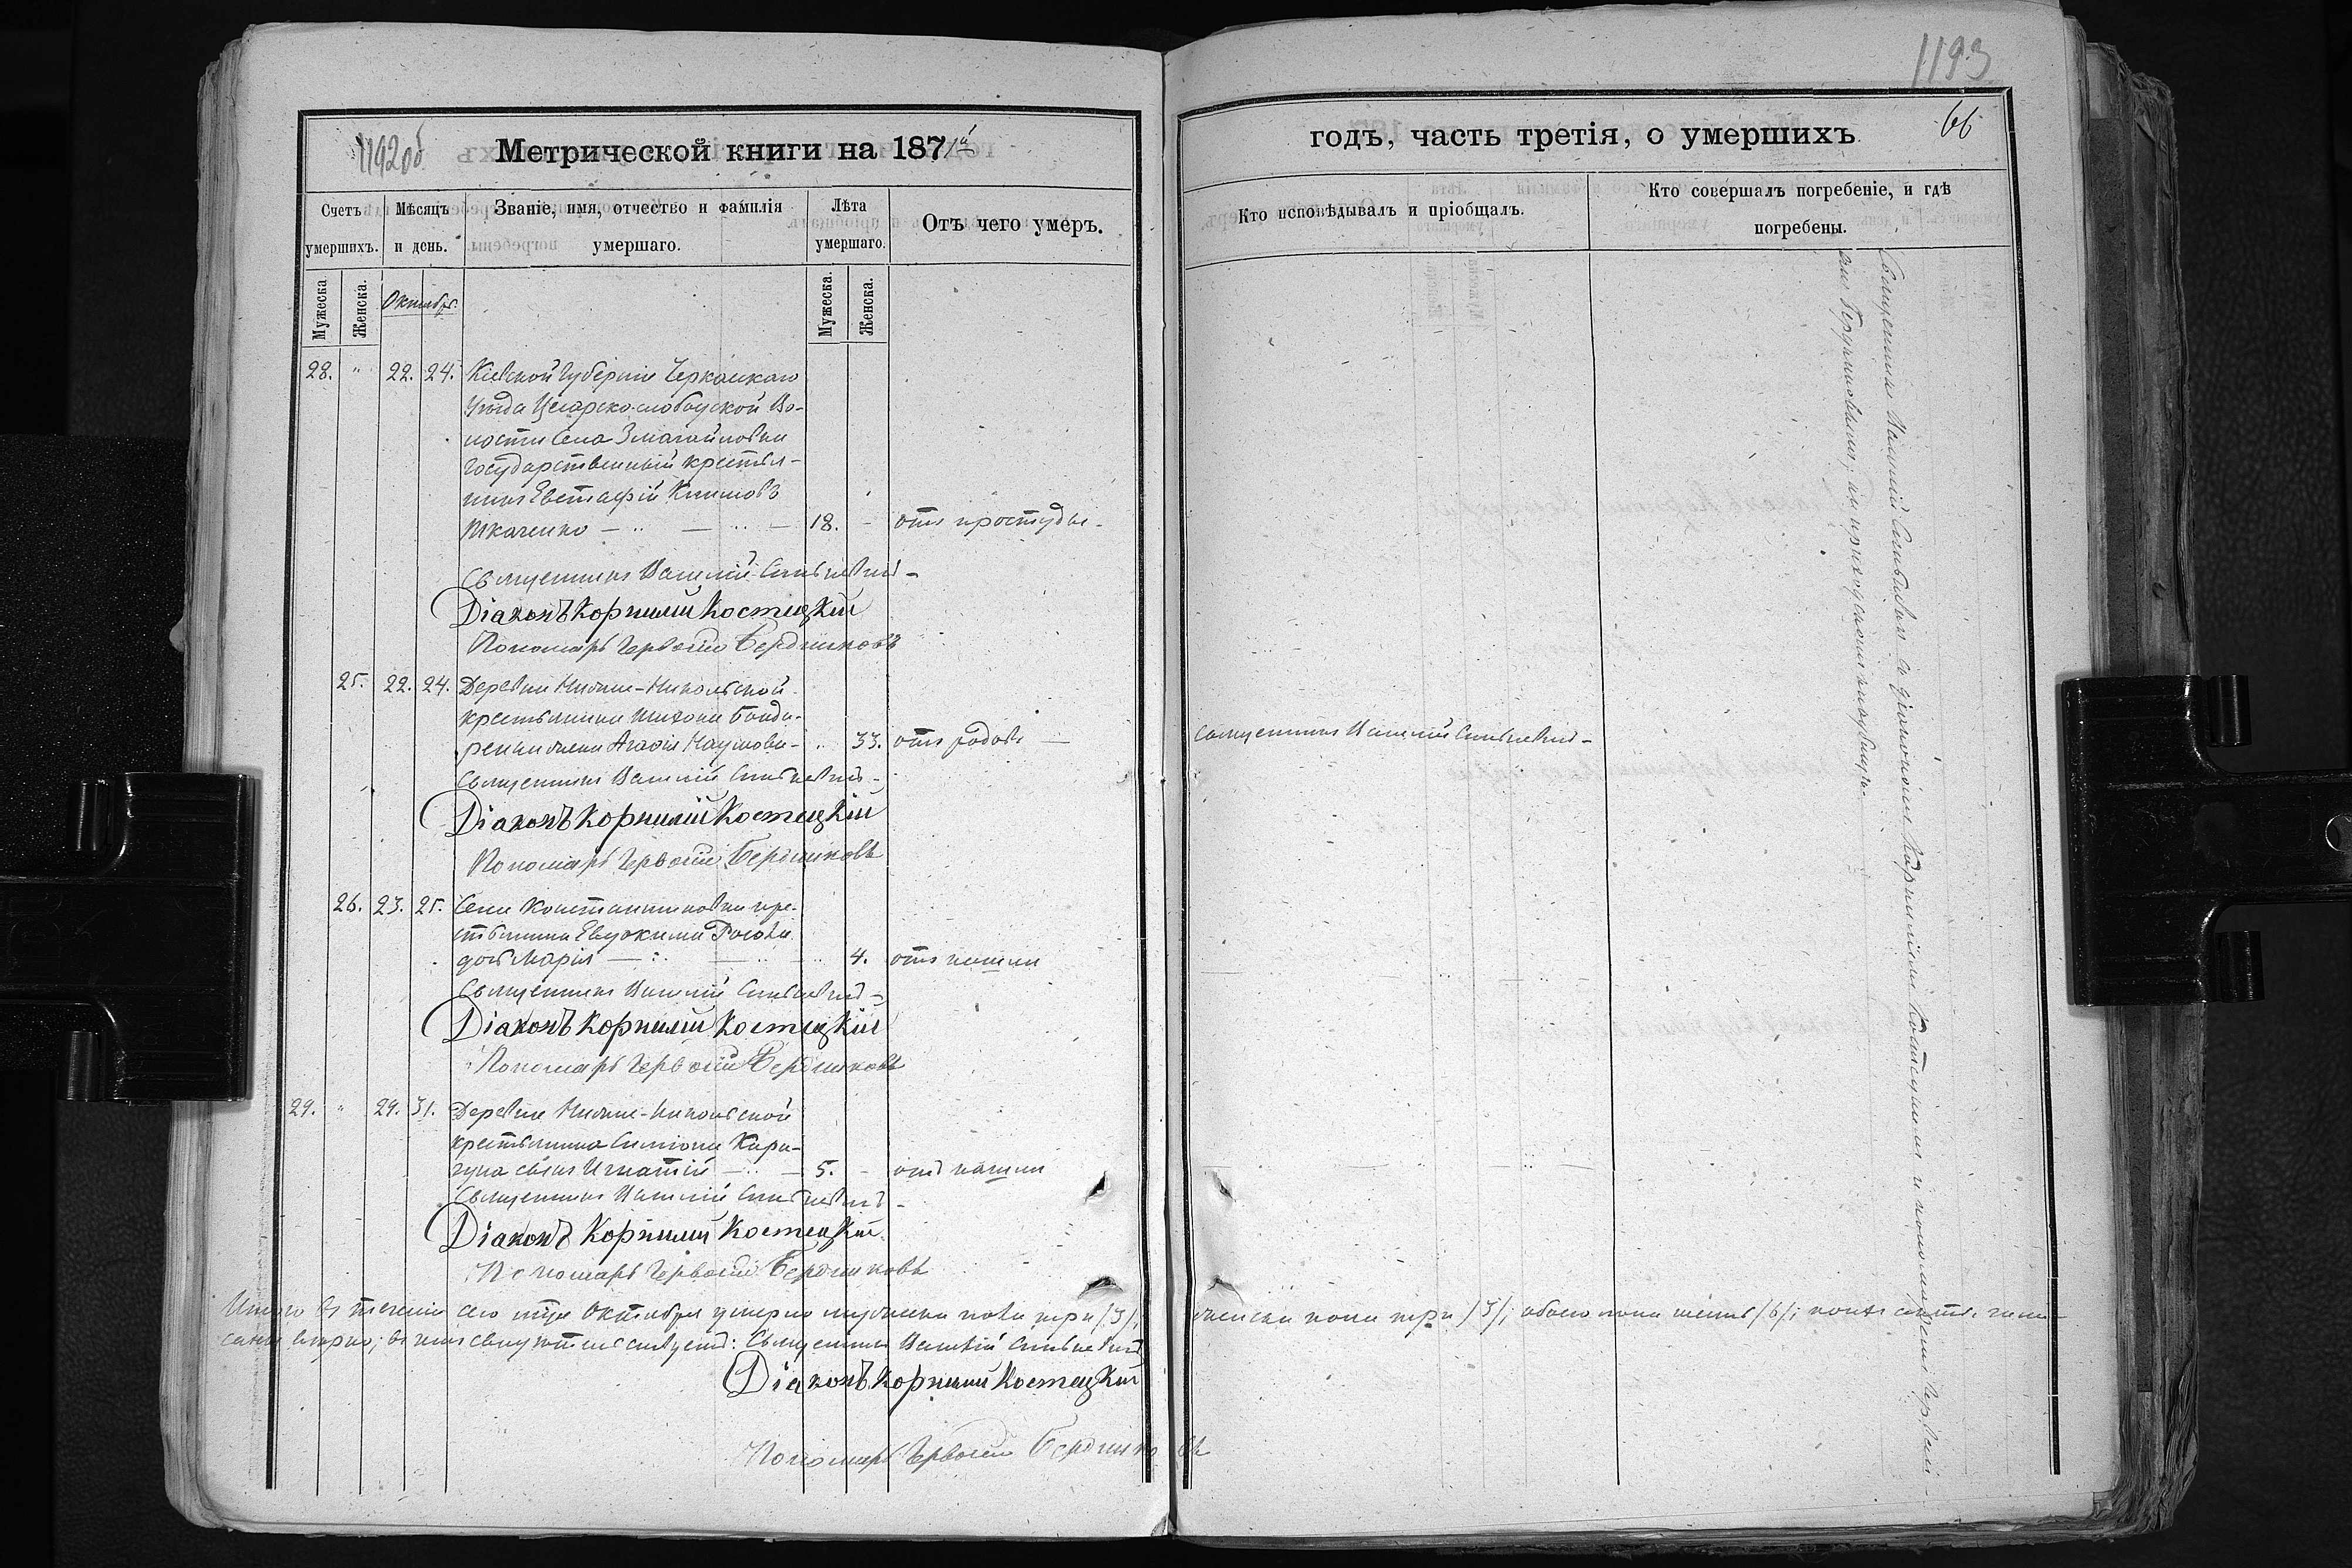 1192об
Метрической книги на 1871й
Счетъ умершихъ.
Мѣсяцъ и день.
Званіе, имя, отчество и фамилія умершаго.
Лѣта умершаго.
Отъ чего умеръ.
Мужеска
Женска.
Октябрь.
Мужеска.
Женска.
28. " 22. 24. Кіевской Губерніи Черкаскаго
Уѣзда Цесарско-слободской Во-
лости Села Змагайловки
государственный крестья-
нинъ Евстафій Климовъ
Ткаченко — 18. - отъ простуды.
Священникъ Василій
Діаконъ Корнилій Костецкій
Пономарь Гервасій Бердниковъ
25. 22. 24. Деревни Нижне-Никольской
крестьянина Тихона Бонда-
ренки жена Агафія Наумова - " 33. отъ родовъ —
Священникъ Василій
Діаконъ Корнилій Костецкій
Пономарь Гервасій Бердниковъ
26. 23. 25. Села Константиновки кре-
стьянина Евдокима
дочь Марія — " 4. отъ кашля
Священникъ Василій
Діаконъ Корнилій Костецкій
Пономарь Гервасій Бердниковъ
29. " 29. 31. Деревни Нижне-Никольской
крестьянина Симеона Кара-
гуца сынъ Игнатій — 5. - отъ кашля
Священникъ Василій
Діаконъ Корнилій Костецкій
Пономарь Гервасій Бердниковъ
Итого въ теченіи сего мтца Октября умерло мужеска пола три /3/,
вѣрно; въ чемъ свидѣтельствуетъ: Священникъ Василій
Діаконъ Корнилій Костецкій
Пономарь Гервасій Бердниковъ
1193
66
годъ, часть третія, о умершихъ
Кто исповѣдывалъ и пріобщалъ.
Кто совершалъ погребеніе, и гдѣ погребены.
Священникъ Василій
Священникъ Василій съ діакономъ Корниліемъ Костецкимъ и пономаремъ Герва-
сіемъ Бердниковымъ, на приходскомъ кладбищѣ.
женска пола три /3/; обоего пола шесть /6/;